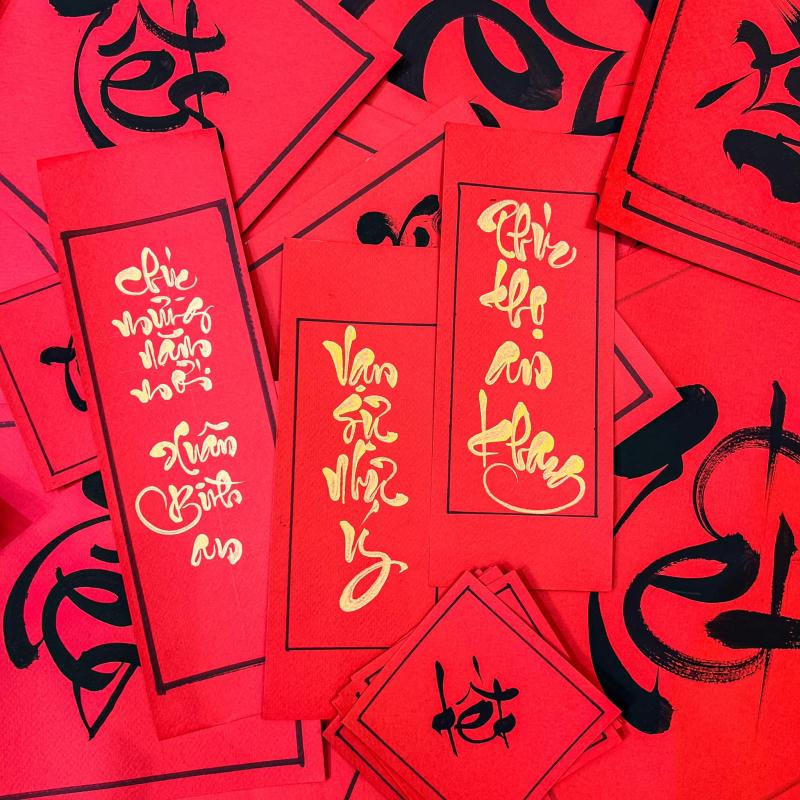 Tết
Chúc
mừng
năm
mới
Xuân
Bình
an
Vạn
sự
như
ý
Phúc
thọ
an
khang
tết